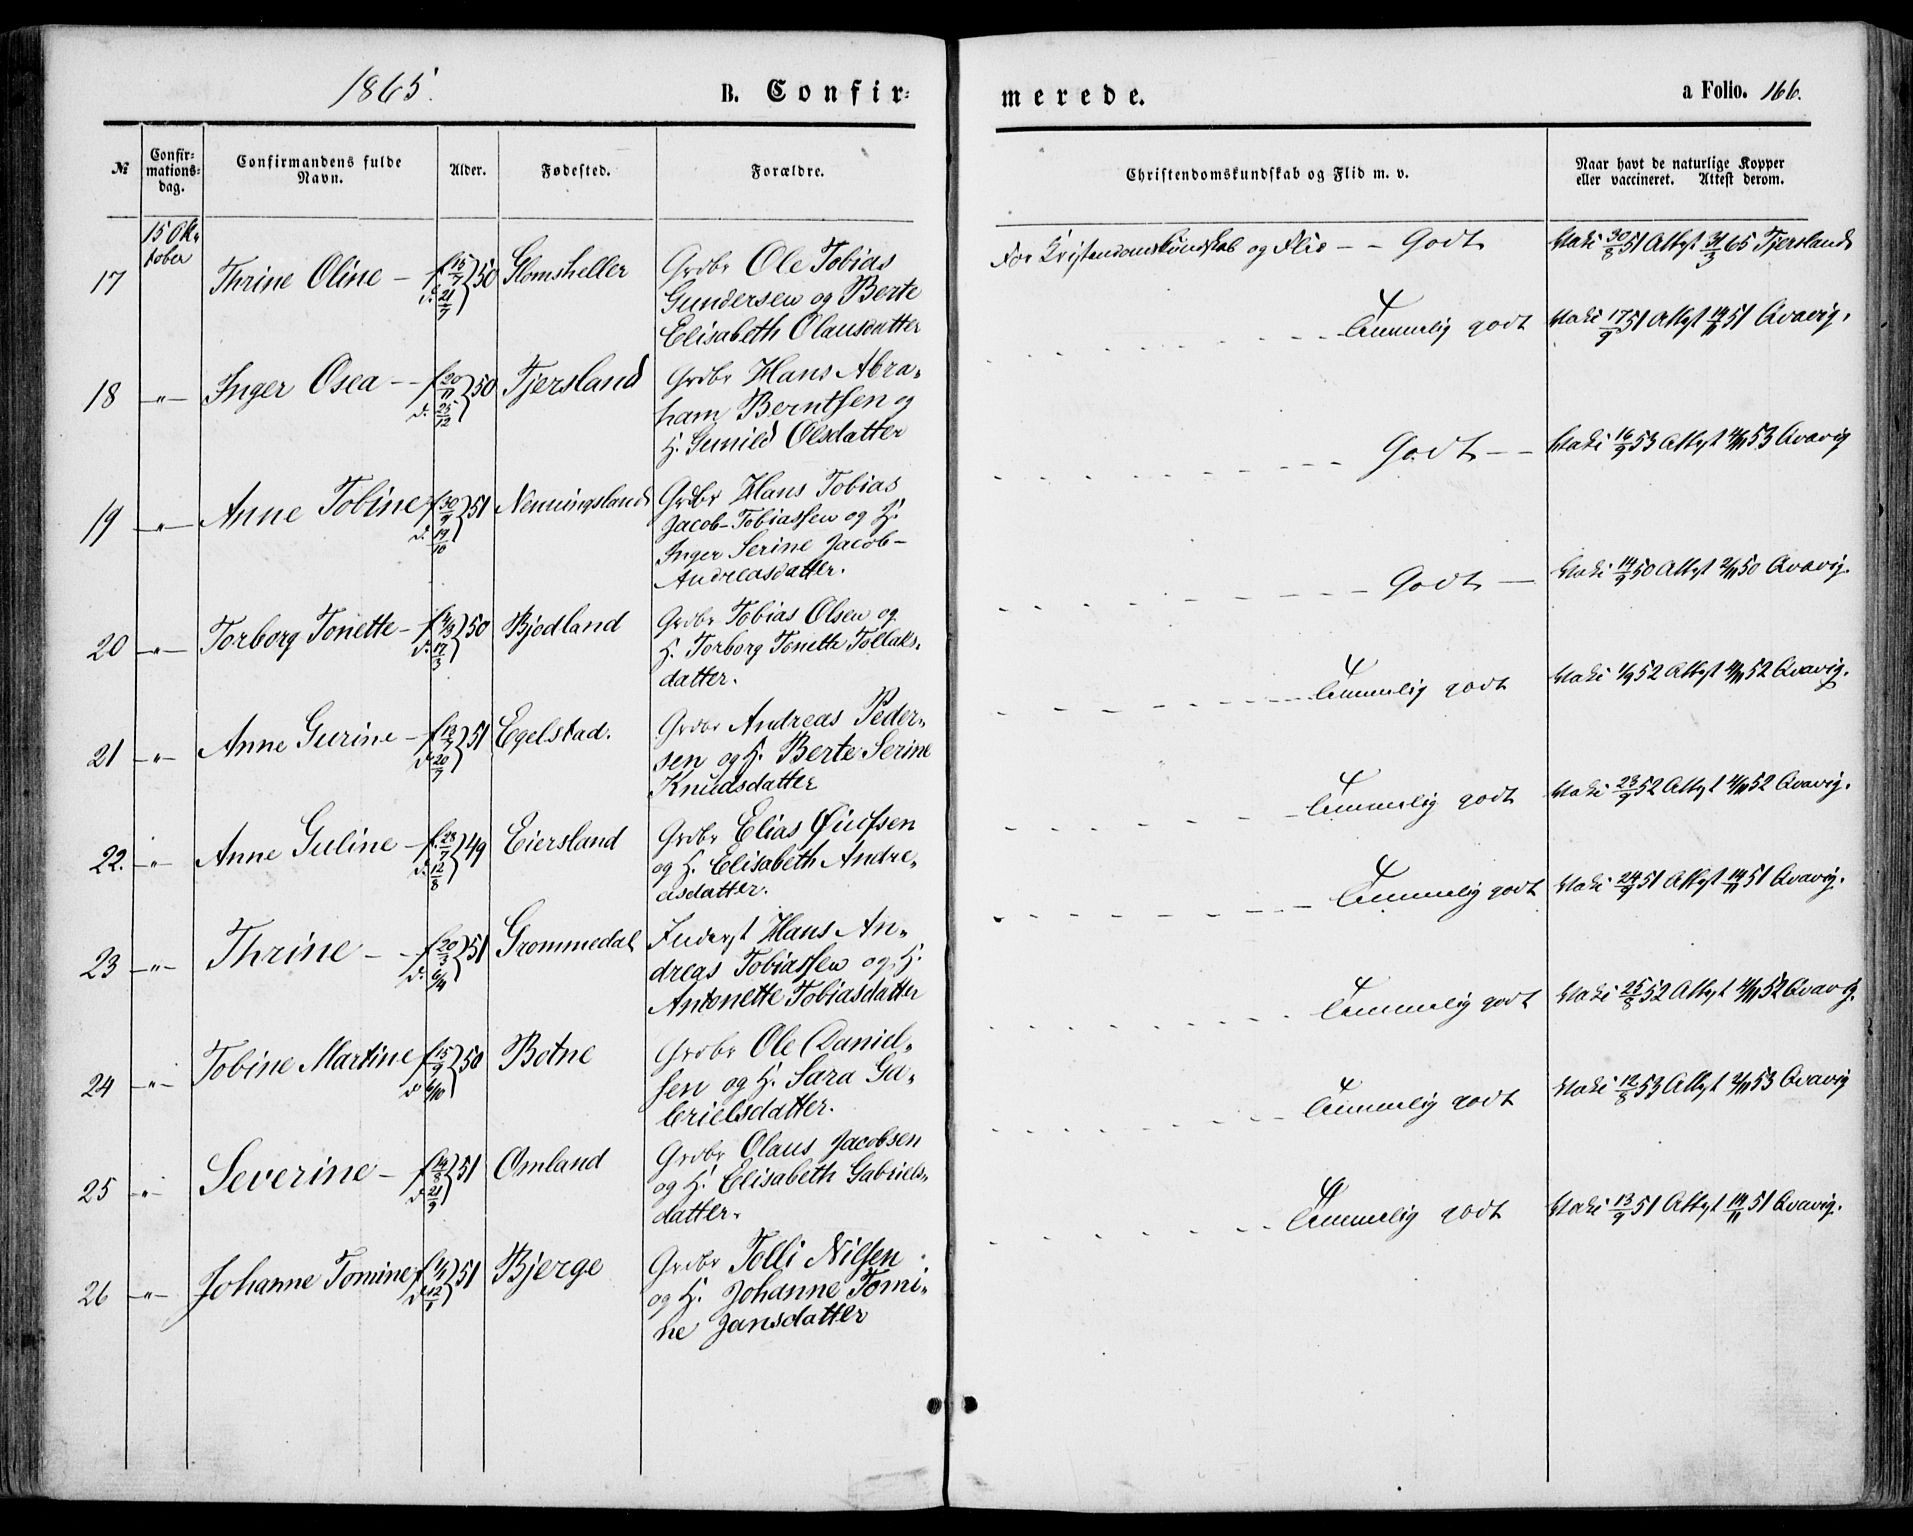 1865.
B. Confir=
merede.
a Folio. 166.
№
Confir=
mations=
dag.
Confirmandens fulde
Navn.
Alder.
Fødested.
Forældre.
Christendomskundskab og Flid m. v.
Naar havt de naturlige Kopper
eller vaccineret. Attest derom.
15 Ok=
tober
17 Thrine Oline — f 15/7 d. 21/7 } 50 Slomsheller Grdbr Ole Tobias
Gundersen og Berte
Elisabeth Olausdatter
For Kristendomskundskab og Flid — — Godt Vaki 30/8 51 Attest 31/3 65 Tjersland
18 —"— Inger Osea — f 20/11 d. 25/12 } 50 Tjersland Grdbr Hans Abra=
ham Berntsen og
H. Gunild Olsdatter
Temmelig godt Vaki 17/9 51 Attest 14/11 51 Qvavig.
19 —"— Anne Tobine f 30/9 d. 19/10 } 51 Nenningsland Grdbr Hans Tobias
Jacob-Tobiassen og H.
Inger Serine Jacob-
Andreasdatter.
Godt — — Vaki 16/9 53 Attest 4/11 53 Qvavig
20 —"— Torborg Tonette — f 4/3 d. 17/3 } 50 Bjodland Grdbr Tobias Olsen og
H. Torborg Tonette Tollaks=
datter.
Godt — Vaki 14/9 50 Attest 2/11 50 Qvavig.
21 —"— Anne Gurine — f 13/7 d. 20/7 } 51 Egelstad. Grdbr Andreas Peder=
sen og H. Berte Serine
Knudsdatter
Temmelig godt Vaki 1/9 52 Attest 4/11 52 Qvavig.
22. —"— Anne Guline — f. 28/7 d. 12/8 } 49 Eiersland Grdbr Elias
og H. Elisabeth Andre=
asdatter.
Temmelig godt Vaki 23/9 52 Attest 4/11 52 Qvavig.
23 —"— Thrine — — f 20/3 d. 6/4 } 51 Grommedal Inderst Hans An=
dreas Tobiassen og H.
Antonette Tobiasdatter
Temmelig godt Vaki 24/9 51 Attest 14/11 51 Qvavig.
24 —"— Tobine Martine f 15/9 d 6/10 } 50 Botne Grdbr Ole Daniel=
sen og H. Sara Ga=
brielsdatter.
Temmelig godt Vaki 25/8 52 Attest 4/11 52 Qvavig.
25 —"— Severine — f 14/8 d. 21/9 } 51 Omland Grdbr Olaus Jacobsen
og H. Elisabeth Gabriels=
datter.
Temmelig godt Vaki 12/8 53 Attest 2/11 53 Qvavig
26 —"— Johanne Tomine f 1/1 d. 12/1 } 51 Bjerge Grdbr Tolli Nilsen
og H. Johanne Tomi=
ne Jansdatter
Temmelig godt Vaki 13/9 51 Attest 14/11 51 Qvavig.